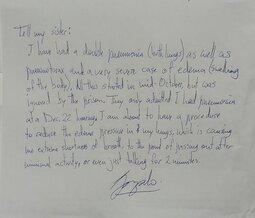 Tell my sister:
I have had a double pneumonia (both lungs) as well as
pneumothorax and a very severe case of edema (swelling
of the body). All this started in mid-October, but was
ignored by the prison. They only admitted I had pneumonia
at a Dec. 22 hearing. I am about to have a procedure
to reduce the edema pressure in my lungs, which is causing
me extreme shortness of breath, to the point of passing out after
minimal activity, or even just talking for 2 minutes.
Gonzalo